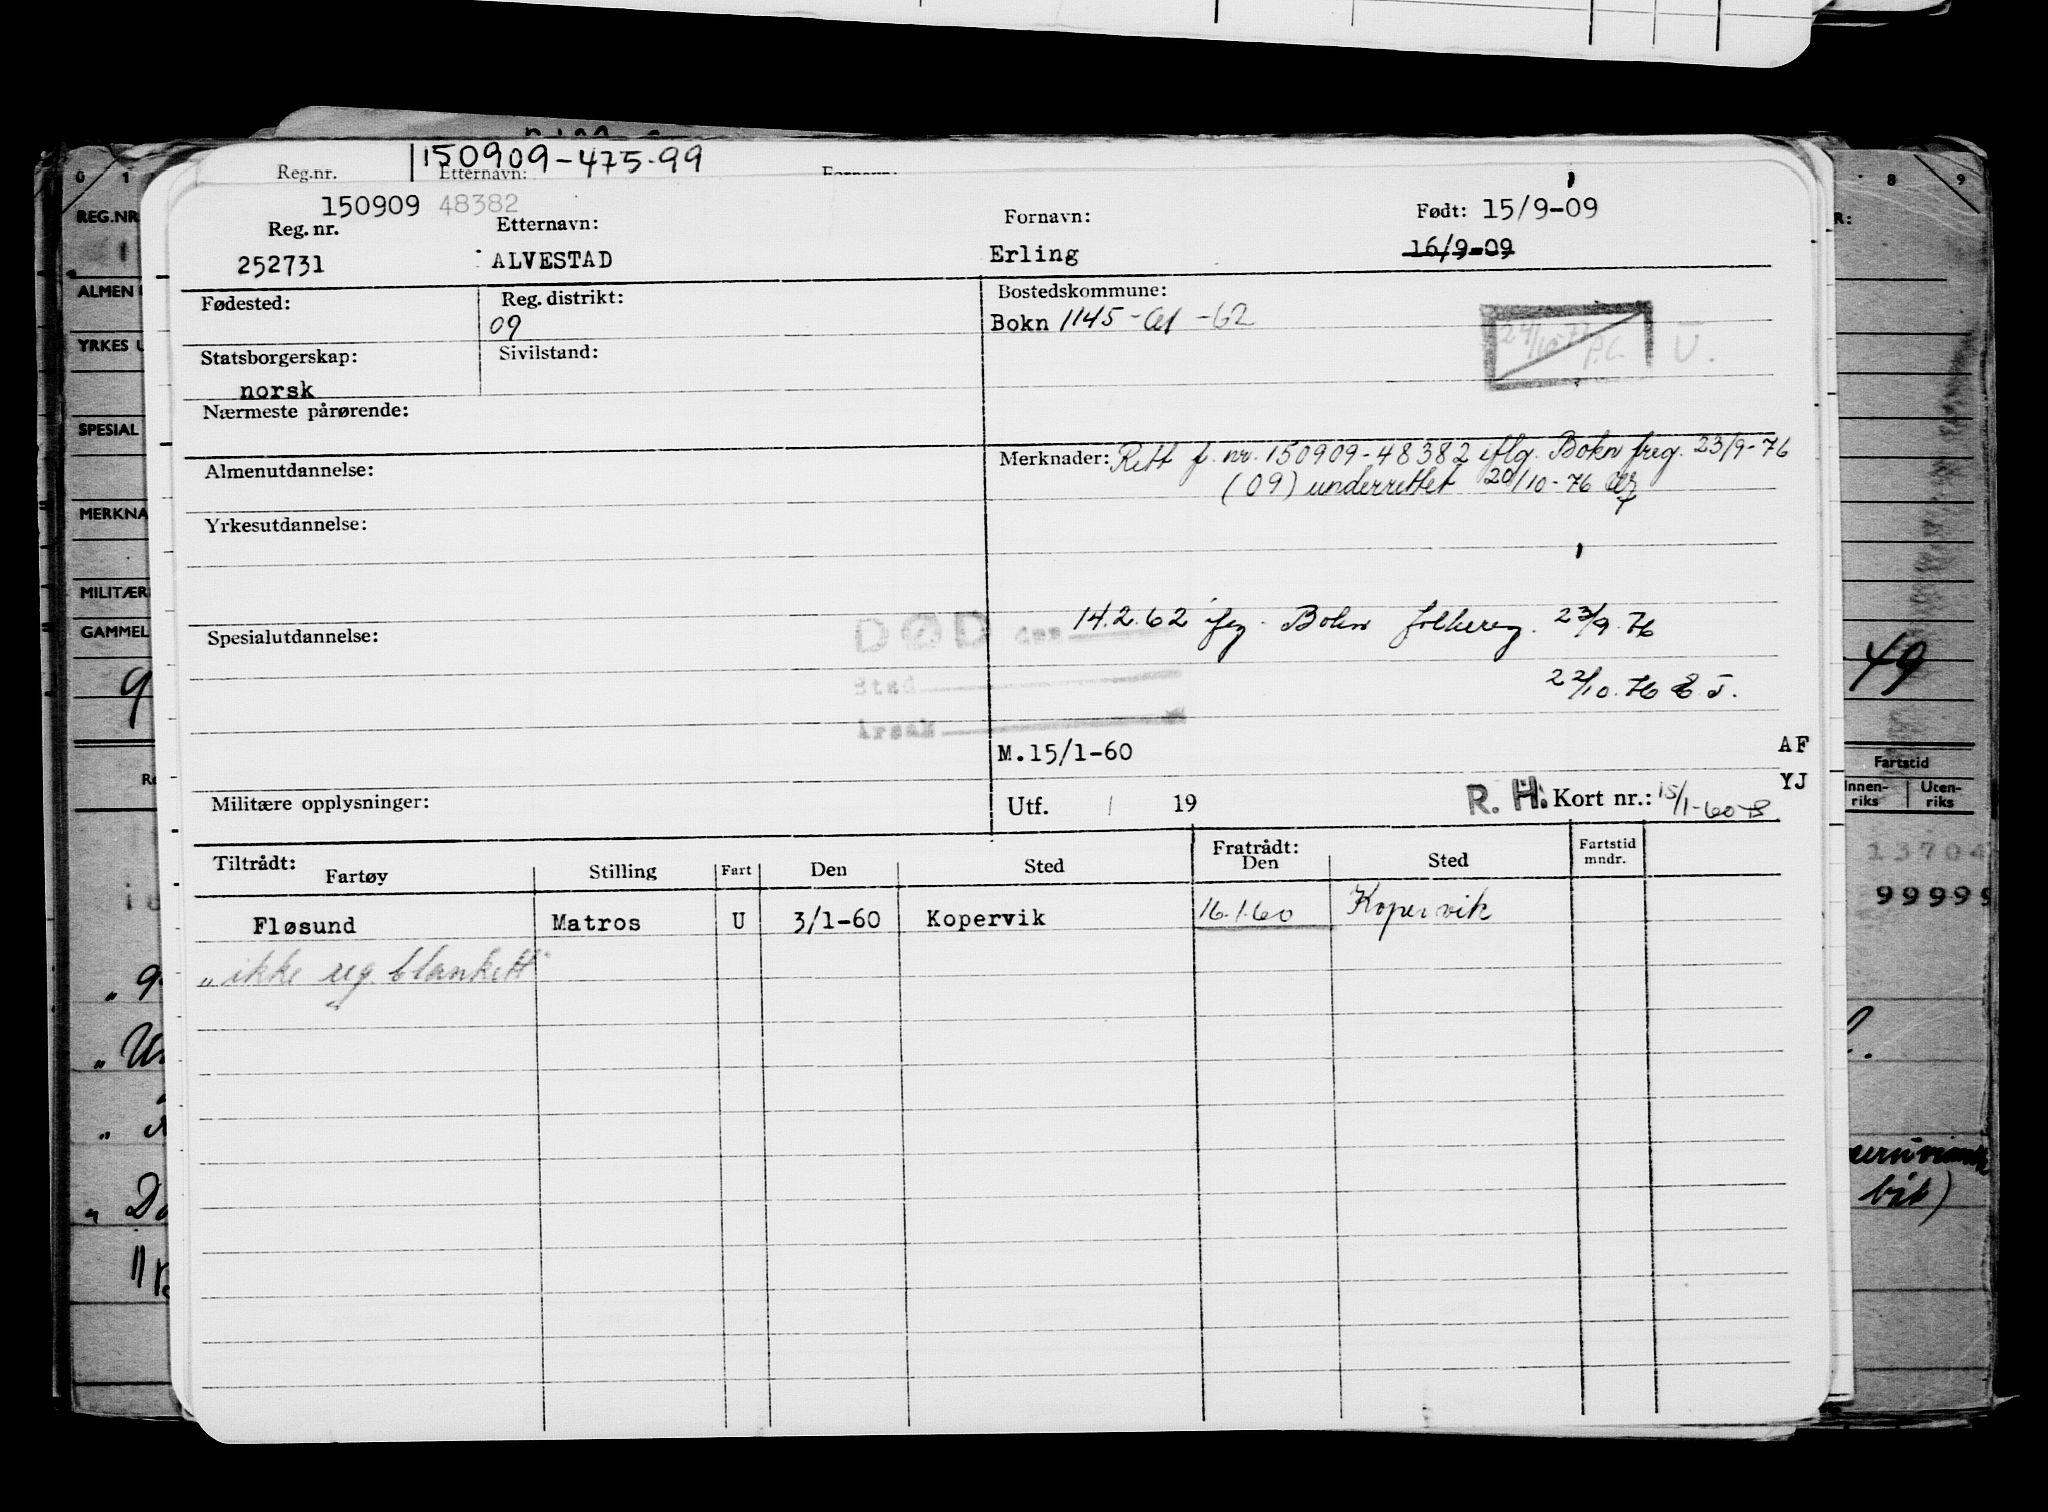 150909-475.99
Reg.nr. Etternavn: Fornavn:
150909 48382
Reg. nr. Etternavn: Fornavn: Født: 15/9-09
252731 ALVESTAD Erling 16/9-09
Fødested: Reg. distrikt: Bostedskommune:
09 Bokn 1145- -62
Statsborgerskap: Sivilstand:
norsk
U.
Nærmeste pårørende:
Merknader: Rett f. nr. 150909-48382 iflg. Bokn freg. 23/9-76
(09) underrettet 20/10-76
Almenutdannelse:
Yrkesutdannelse:
14.2.62 Bokn folkereg. 23/9.76
Spesialutdannelse:
DØD den
Sted
Årsak
22/10.76
M.15/1-60
AF
YJ
Militære opplysninger: Utf. / 19 R. H. Kort nr.: 15/1-60
Tiltrådt: Fratrådt: Fartstid
Fartøy Stilling Fart Den Sted Den Sted mndr.
Fløsund Matros U 3/1-60 Kopervik 16.1.60 Kopervik
"ikke reg. blankett"
0 1 8 9
REG.NR
ALMEN
YRKES U
SPESIAL
MERKNA
MILITÆR
GAMMEL
49
Fartstid
Innen-riks Uten-riks
13704
99999